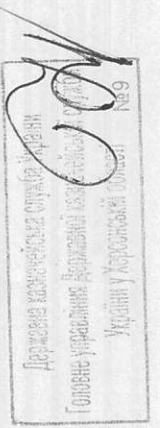 Державна казначейська служба України
Головне управління Державної казначейської служби
України у Херсонській області
№9